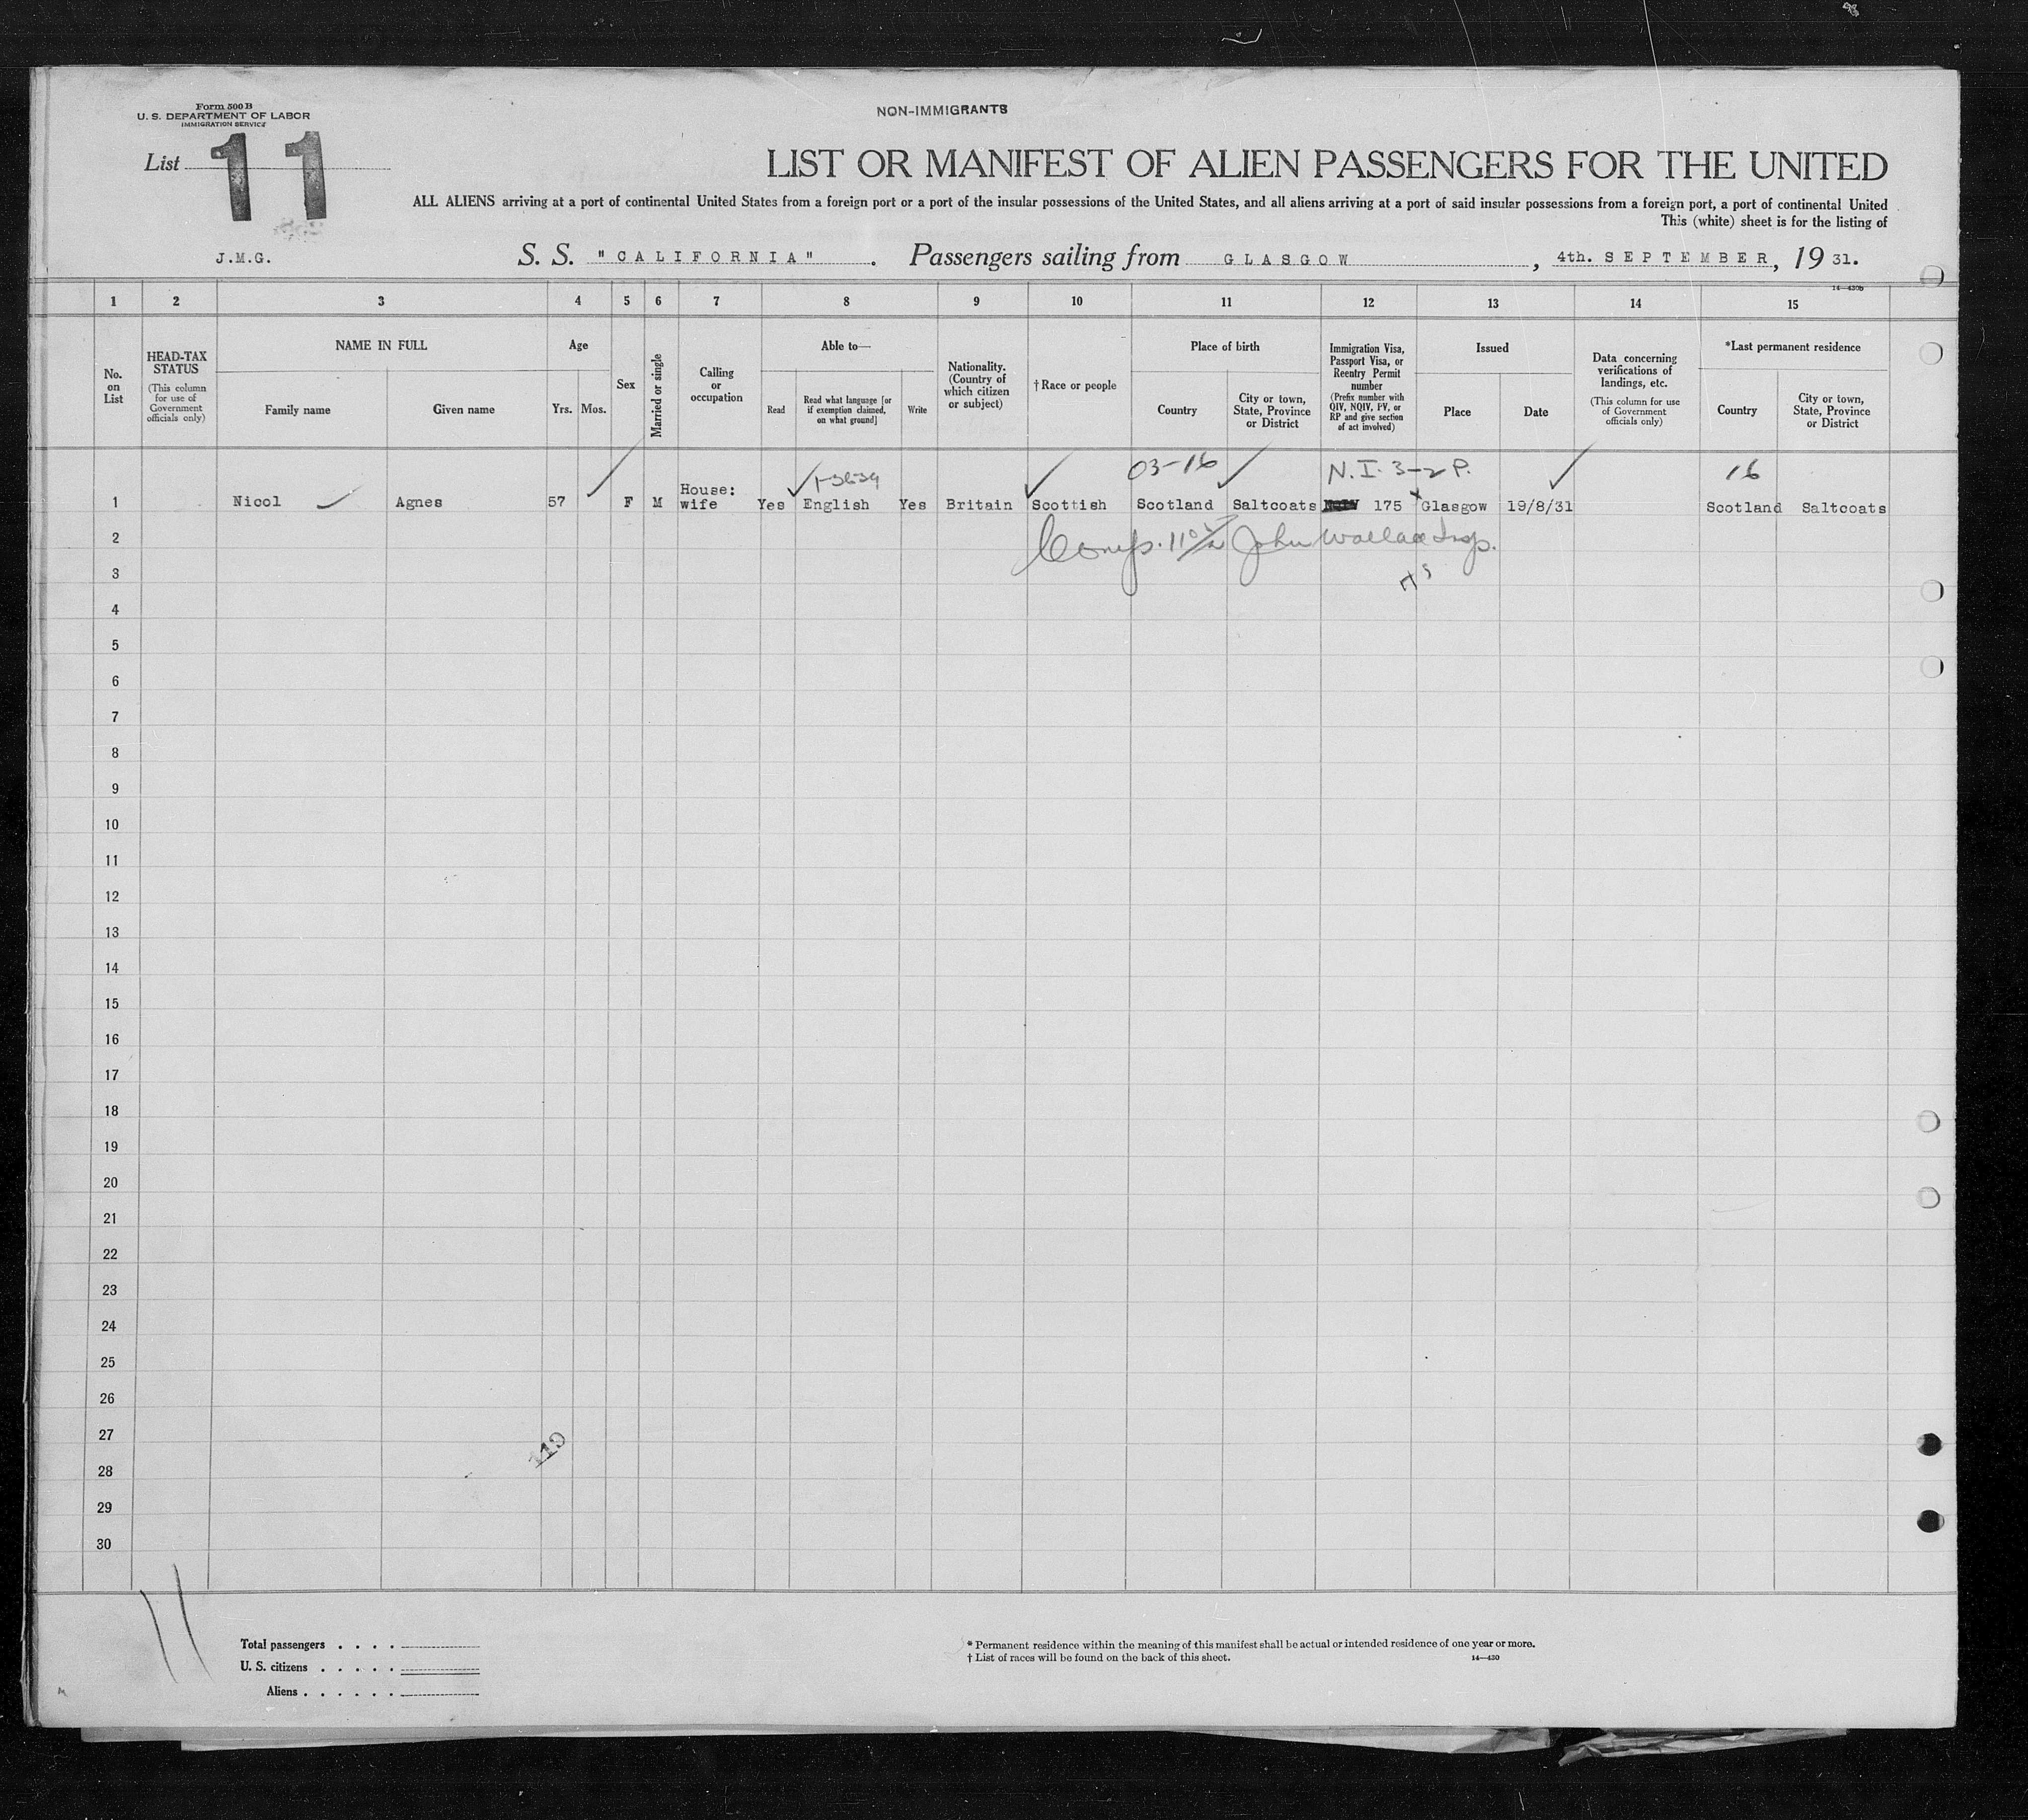 Form 500 B
U. S. DEPARTMENT OF LABOR
IMMIGRATION SERVICE
NON-IMMIGRANTS
List 11
LIST OR MANIFEST OF ALIEN PASSENGERS FOR THE UNITED
ALL ALIENS arriving at a port of continental United States from a foreign port or a port of the insular possessions of the United States, and all aliens arriving at a port of said insular possessions from a foreign port, a port of continental United
This (white) sheet is for the listing of
J.M.G. S. S. "CALIFORNIA". Passengers sailing from GLASGOW, 4th. SEPTEMBER, 19 31.
14—430b
1 2 3 4 5 6 7 8 9 10 11 12 13 14 15
No. on List
HEAD-TAX STATUS
(This column for use of Government officials only)
NAME IN FULL
Family name Given name
Age
Yrs. Mos.
Sex
Married or single
Calling or occupation
Able to—
Read
Read what language [or if exemption claimed, on what ground]
Write
Nationality. (Country of which citizen or subject)
†Race or people
Place of birth
Country
City or town, State, Province or District
Immigration Visa, Passport Visa, or Reentry Permit number
(Prefix number with QIV, NQIV, PV, or RP and give section of act involved)
Issued
Place Date
Data concerning verifications of landings, etc.
(This column for use of Government officials only)
*Last permanent residence
Country
City or town, State, Province or District
03-16 N.I. 3-2 P. 16
1 Nicol Agnes 57 F M House: wife Yes English Yes Britain Scottish Scotland Saltcoats 175 Glasgow 19/8/31 Scotland Saltcoats
2 John Wallace Insp.
3
4
5
6
7
8
9
10
11
12
13
14
15
16
17
18
19
20
21
22
23
24
25
26
27
28
29
30
Total passengers . . . .
U. S. citizens . . . . .
Aliens . . . . . .
* Permanent residence within the meaning of this manifest shall be actual or intended residence of one year or more.
† List of races will be found on the back of this sheet.
14—430